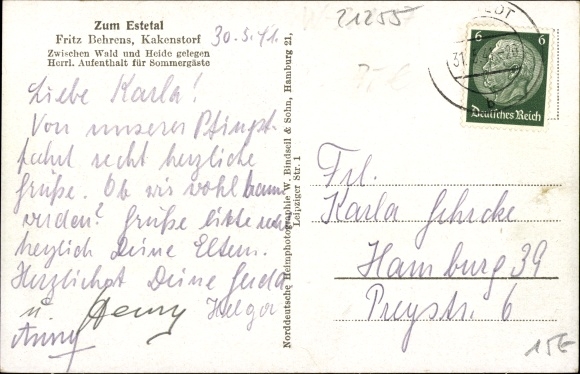 Zum Estetal
Fritz Behrens, Kakenstorf
Zwischen Wald und Heide gelegen
Herrl. Aufenthalt für Sommergäste
30.5.41.
Liebe Karla!
Von unserer Pfingst-
fahrt recht herzliche
Grüße. Ob wir wohl braun
werden? Grüße bitte recht
herzlich Deine Eltern.
Herzlichst Deine Gerda
u. Henry Helga
Anny
Norddeutsche Heimphotographie W. Bindseil & Sohn, Hamburg 21,
Leipziger Str. 1
21255
6 6
Deutsches Reich
Frl.
Karla Gehrcke
Hamburg 39
Preystr. 6
15€